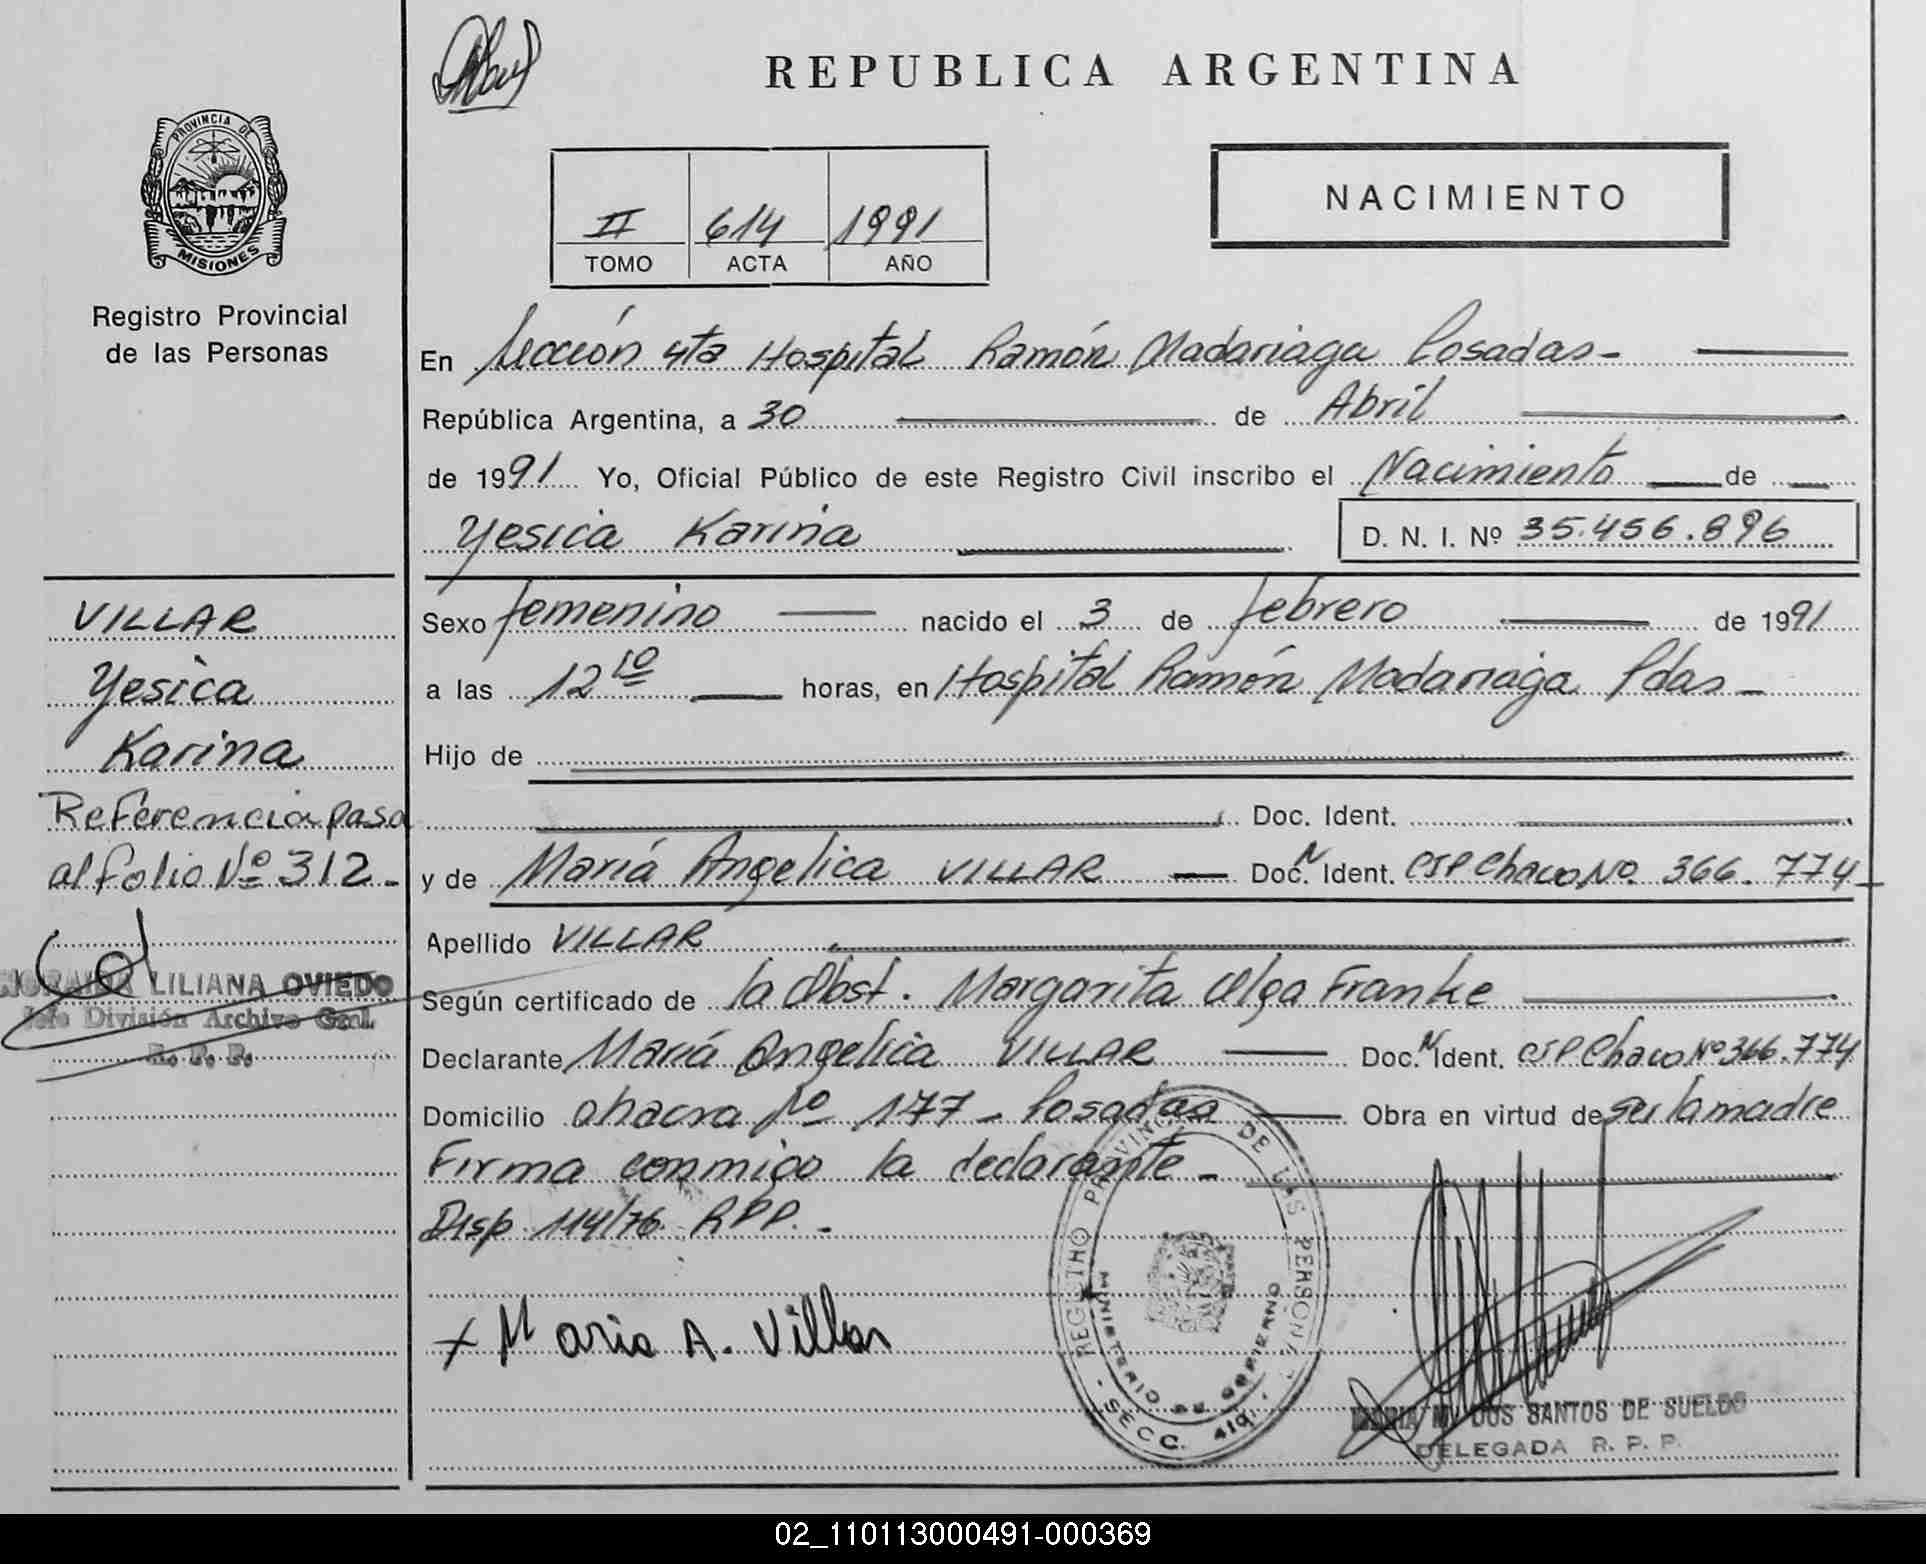 REPUBLICA ARGENTINA
PROVINCIA DE
MISIONES
Registro Provincial
de las Personas
II 614 1991
TOMO ACTA AÑO
NACIMIENTO
En Sección 4ta Hospital Ramón Madariaga Posadas-
República Argentina, a 30 de Abril
de 1991 Yo, Oficial Público de este Registro Civil inscribo el Nacimiento de
Yesica Karina
D. N. I. Nº 35.456.896
VILLAR
Yesica
Karina
Referencia pasa
al folio Nº 312-
LILIANA OVIEDO
Jefe División Archivo Gral.
R. P. P.
Sexo femenino nacido el 3 de febrero de 1991
a las 12 10 horas, en Hospital Ramón Madariaga Pdas-
Hijo de
Doc. Ident.
y de María Angelica VILLAR Doc. N Ident. CIP Chaco No. 366.774-
Apellido VILLAR
Según certificado de la Obst. Margarita Olga Franke
Declarante María Angelica VILLAR Doc. N Ident. CIP Chaco Nº 366.774
Domicilio chacra Nº 177- Posadas Obra en virtud de ser la madre
Firma conmigo la declarante-
Disp 114/76 RPP.-
+ Maria A. Villar
REGISTRO PROVINCIAL DE LAS PERSONAS
MINISTERIO DE GOBIERNO
SECC. 4ta.
MARIA M. DOS SANTOS DE SUELDO
DELEGADA R. P. P.
02_110113000491-000369